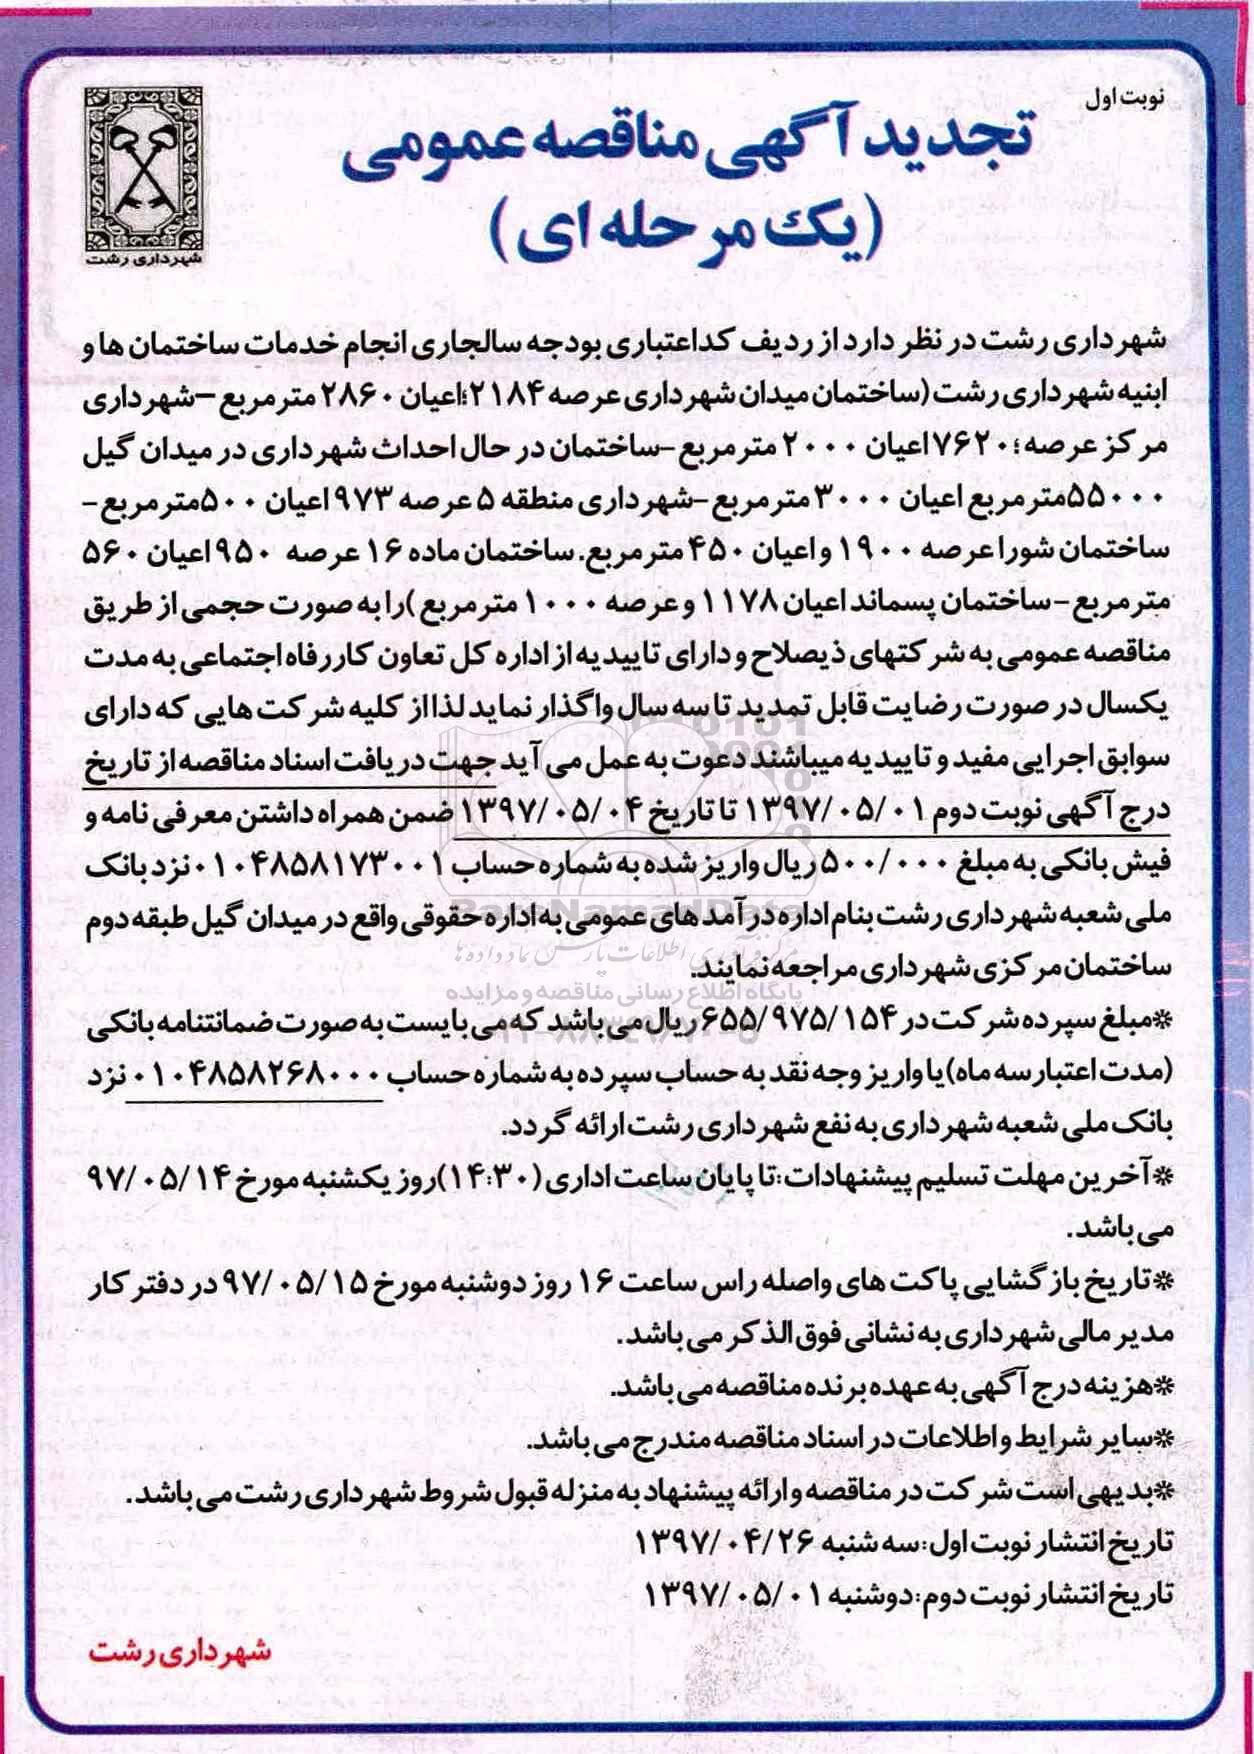 نوبت اول
تجدید آگهی مناقصه عمومی
(یک مرحله ای)
شهرداری رشت
شهرداری رشت در نظر دارد از ردیف کداعتباری بودجه سالجاری انجام خدمات ساختمان ها و
ابنیه شهرداری رشت (ساختمان میدان شهرداری عرصه ۲۱۸۴؛اعیان ۲۸۶۰ مترمربع –شهرداری
مرکز عرصه؛ ۷۶۲۰اعیان ۲۰۰۰ مترمربع -ساختمان در حال احداث شهرداری در میدان گیل
۵۵۰۰۰مترمربع اعیان ۳۰۰۰ مترمربع -شهرداری منطقه ۵ عرصه ۹۷۳ اعیان ۵۰۰مترمربع-
ساختمان شورا عرصه ۱۹۰۰ و اعیان ۴۵۰ مترمربع. ساختمان ماده ۱۶ عرصه ۹۵۰ اعیان ۵۶۰
مترمربع -ساختمان پسماند اعیان ۱۱۷۸ و عرصه ۱۰۰۰ مترمربع )را به صورت حجمی از طریق
مناقصه عمومی به شرکتهای ذیصلاح و دارای تاییدیه از اداره کل تعاون کار رفاه اجتماعی به مدت
یکسال در صورت رضایت قابل تمدید تا سه سال واگذار نماید لذا از کلیه شرکت هایی که دارای
سوابق اجرایی مفید و تاییدیه میباشند دعوت به عمل می آید جهت دریافت اسناد مناقصه از تاریخ
درج آگهی نوبت دوم ۱۳۹۷/۰۵/۰۱ تا تاریخ ۱۳۹۷/۰۵/۰۴ ضمن همراه داشتن معرفی نامه و
فیش بانکی به مبلغ ۵۰۰/۰۰۰ ریال واریز شده به شماره حساب ۰۱۰۴۸۵۸۱۷۳۰۰۱ نزد بانک
ملی شعبه شهرداری رشت بنام اداره درآمدهای عمومی به اداره حقوقی واقع در میدان گیل طبقه دوم
ساختمان مرکزی شهرداری مراجعه نمایند.
*مبلغ سپرده شرکت در ۶۵۵/۹۷۵/۱۵۴ ریال می باشد که می بایست به صورت ضمانتنامه بانکی
(مدت اعتبار سه ماه) یا واریز وجه نقد به حساب سپرده به شماره حساب ۰۱۰۴۸۵۸۲۶۸۰۰۰ نزد
بانک ملی شعبه شهرداری به نفع شهرداری رشت ارائه گردد.
*آخرین مهلت تسلیم پیشنهادات:تا پایان ساعت اداری (۱۴:۳۰)روز یکشنبه مورخ ۹۷/۰۵/۱۴
می باشد.
*تاریخ بازگشایی پاکت های واصله راس ساعت ۱۶ روز دوشنبه مورخ ۹۷/۰۵/۱۵ در دفتر کار
مدیر مالی شهرداری به نشانی فوق الذکر می باشد.
*هزینه درج آگهی به عهده برنده مناقصه می باشد.
*سایر شرایط و اطلاعات در اسناد مناقصه مندرج می باشد.
*بدیهی است شرکت در مناقصه و ارائه پیشنهاد به منزله قبول شروط شهرداری رشت می باشد.
تاریخ انتشار نوبت اول:سه شنبه ۱۳۹۷/۰۴/۲۶
تاریخ انتشار نوبت دوم:دوشنبه ۱۳۹۷/۰۵/۰۱
شهرداری رشت
ParsNamadData
پایگاه اطلاع رسانی مناقصه و مزایده